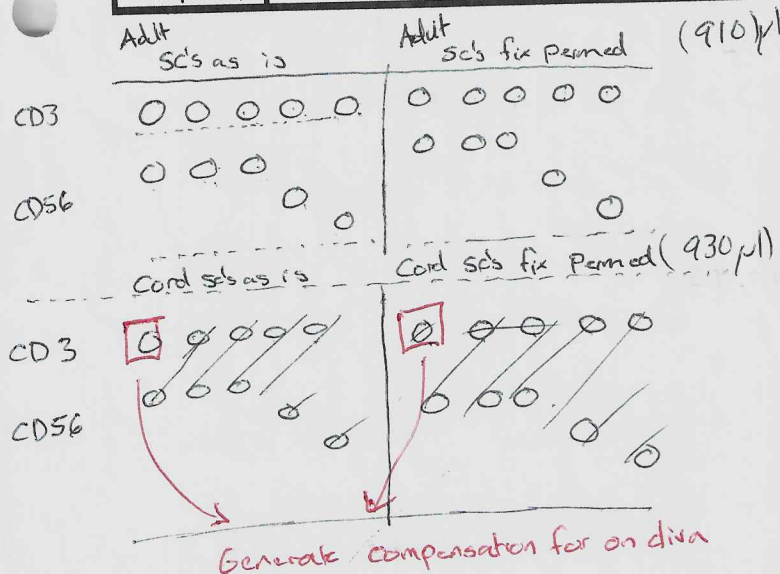 Adult Adult (910)µl
SC's as is SC's fix permed
CD3
CD56
Cord SC's as is Cord SC's fix permed (930µl)
CD3
CD56
Generate compensation for on diva